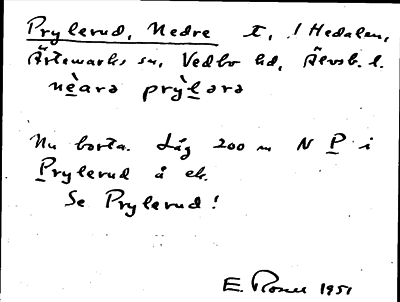 Prylerud, Nedre t, i Hedalen,
Ärtemarks sn, Vedbo hd, Älvsb. l.
nèarə prỳlərə
Nu borta. Låg 200 m N P i
Prylerud å ek.
Se Prylerud!
E. Rosell 1951